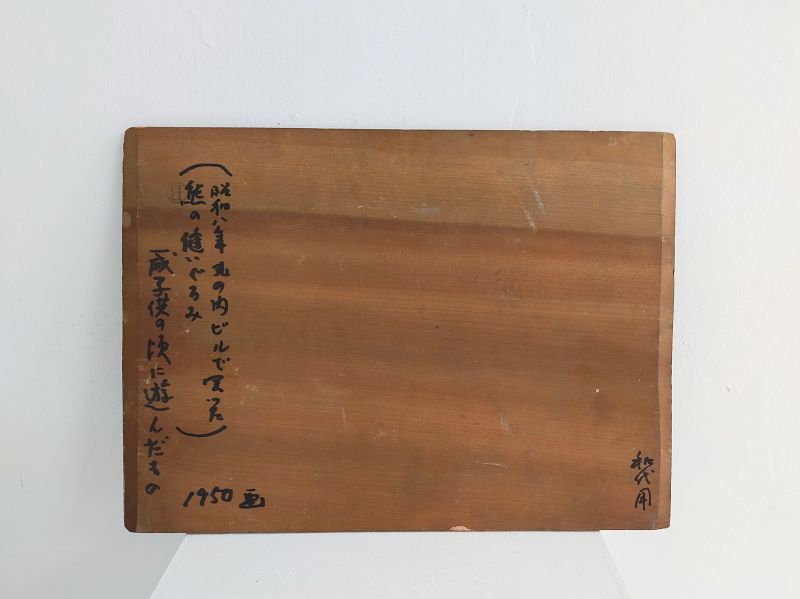 (昭和八年 丸の内ビルで買った)
熊の縫いぐるみ
一成子供の頃に遊んだもの
1950 画
和代用